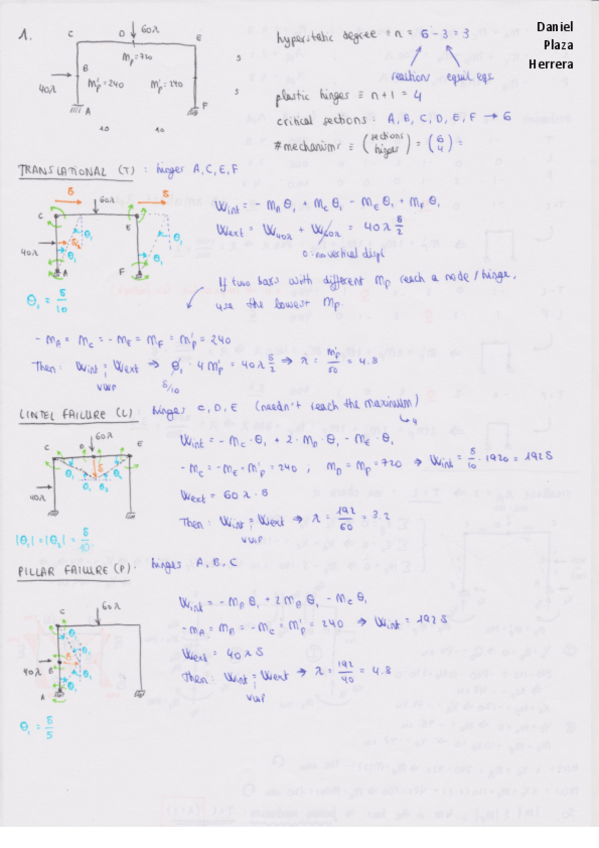 Daniel
Plaza
Herrera
1.
C D 60λ E
Mp=720
B
40λ M'p=240 M'p=240
A F
5
5
10 10
hyperstatic degree = n = 6 - 3 = 3
reaction equil eqs
plastic hinges ≡ n+1 = 4
critical sections : A, B, C, D, E, F → 6
#mechanisms ≡ (sections hinges) = (6 4) =
TRANSLATIONAL (T) : hinges A, C, E, F
δ 60λ δ
C E
θ₁ θ₁
40λ
A F
θ₁ = δ/10
Wint = - MA θ₁ + MC θ₁ - ME θ₁ + MF θ₁
Wext = W40λ + W60λ = 40λ δ/2
0 : no vertical displ
If two bars with different Mp reach a node / hinge,
use the lowest Mp.
- MA = MC = - ME = MF = M'p = 240
Then: Wint = Wext ⇒ θ₁ · 4 M'p = 40λ δ/2 ⇒ λ = Mp/50 = 4.8
VWP δ/10
LINTEL FAILURE (L) : hinges C, D, E (needn't reach the maximum)
4
60λ
C D E
δ
θ₁ θ₂
40λ
|θ₁| = |θ₂| = δ/10
Wint = - MC · θ₁ + 2 · MD · θ₁ - ME · θ₁
- MC = - ME = M'p = 240 ; MD = Mp = 720 ⇒ Wint = δ/10 · 1920 = 192δ
Wext = 60λ · δ
Then : Wint = Wext ⇒ λ = 192/60 = 3.2
VWP
PILLAR FAILURE (P). hinges A, B, C
C 60λ
θ₁
40λ B δ
θ₁
A
θ₁ = δ/5
Wint = - MA θ₁ + 2 MB θ₁ - MC θ₁
- MA = MB = - MC = M'p = 240 ⇒ Wint = 192δ
Wext = 40λδ
Then : Wint = Wext ⇒ λ = 192/40 = 4.8
VWP